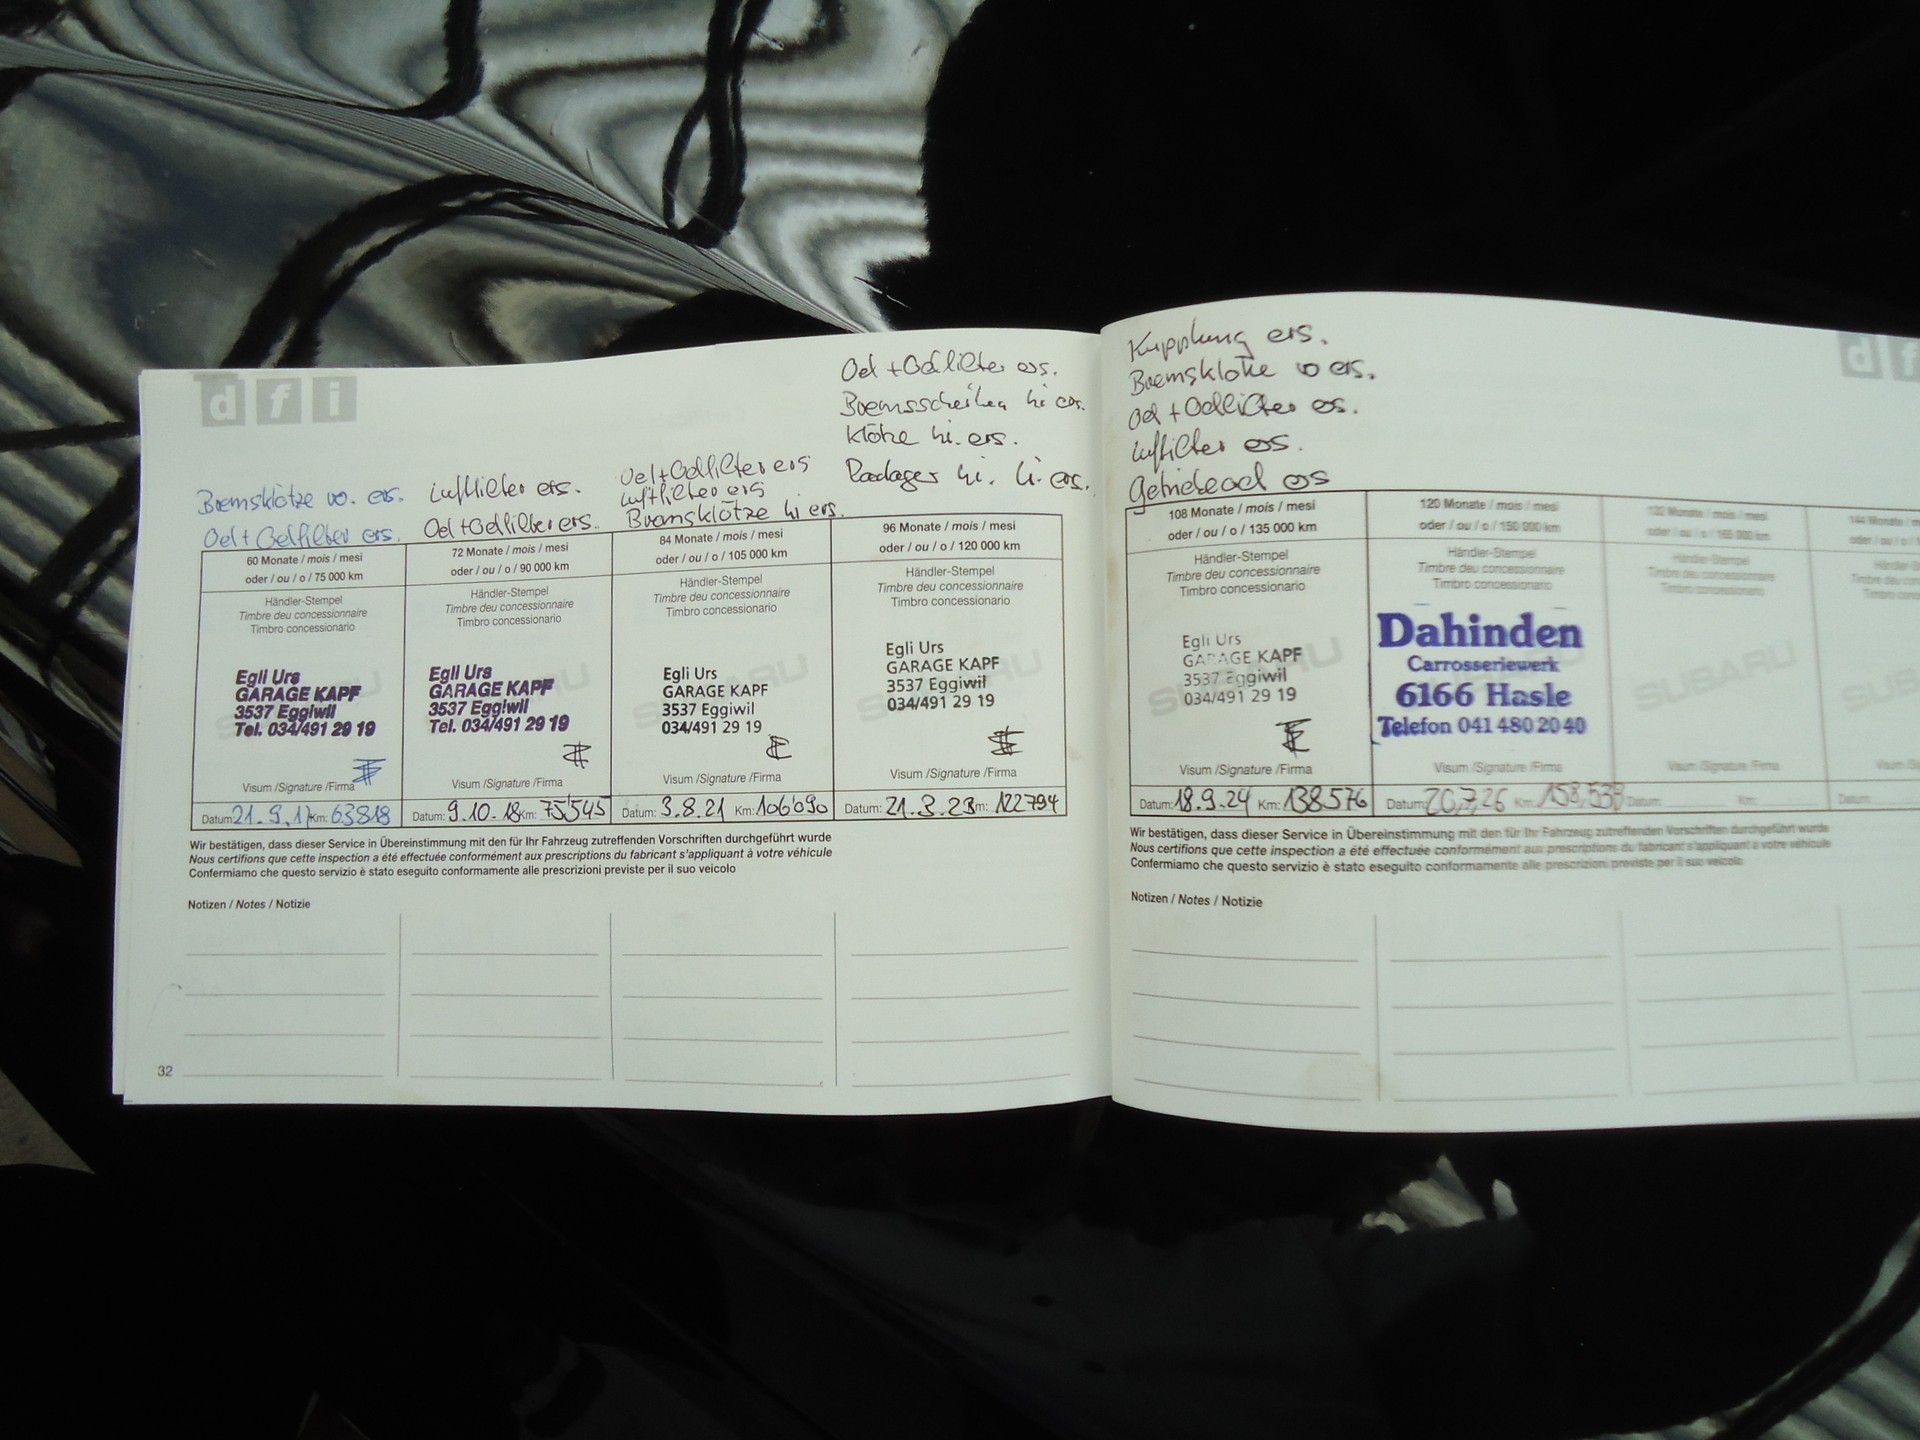 dfi
Bremsklötze vo. ers.
Oel+Oelfilter ers.
Luftfilter ers.
Oel+Oelfilter ers.
Oel+Oelfilter ers
Luftfilter ers
Bremsklötze hi ers.
Oel+Oelfilter ers.
Bremsscheiben hi ers.
Klötze hi. ers.
Radlager hi. li. ers.
60 Monate / mois / mesi
oder / ou / o / 75 000 km
Händler-Stempel
Timbre deu concessionnaire
Timbro concessionario
Egli Urs
GARAGE KAPF
3537 Eggiwil
Tel. 034/491 29 19
Visum /Signature /Firma
Datum: 21.9.17 Km: 63818
72 Monate / mois / mesi
oder / ou / o / 90 000 km
Händler-Stempel
Timbre deu concessionnaire
Timbro concessionario
Egli Urs
GARAGE KAPF
3537 Eggiwil
Tel. 034/491 29 19
Visum /Signature /Firma
Datum: 9.10.18 Km: 75'545
84 Monate / mois / mesi
oder / ou / o / 105 000 km
Händler-Stempel
Timbre deu concessionnaire
Timbro concessionario
SUBARU
Egli Urs
GARAGE KAPF
3537 Eggiwil
034/491 29 19
Visum /Signature /Firma
Datum: 3.8.21 Km: 106'090
96 Monate / mois / mesi
oder / ou / o / 120 000 km
Händler-Stempel
Timbre deu concessionnaire
Timbro concessionario
SUBARU
Egli Urs
GARAGE KAPF
3537 Eggiwil
034/491 29 19
Visum /Signature /Firma
Datum: 21.3.23 Km: 122794
Wir bestätigen, dass dieser Service in Übereinstimmung mit den für Ihr Fahrzeug zutreffenden Vorschriften durchgeführt wurde
Nous certifions que cette inspection a été effectuée conformément aux prescriptions du fabricant s'appliquant à votre véhicule
Confermiamo che questo servizio è stato eseguito conformamente alle prescrizioni previste per il suo veicolo
Notizen / Notes / Notizie
32
d f
Kupplung ers.
Bremsklötze vo ers.
Oel+Oelfilter ers.
Luftfilter ers.
Getriebeoel ers
108 Monate / mois / mesi
oder / ou / o / 135 000 km
Händler-Stempel
Timbre deu concessionnaire
Timbro concessionario
SUBARU
Egli Urs
GARAGE KAPF
3537 Eggiwil
034/491 29 19
Visum /Signature /Firma
Datum: 18.9.24 Km: 138576
120 Monate / mois / mesi
oder / ou / o / 150 000 km
Händler-Stempel
Timbre deu concessionnaire
Timbro concessionario
Dahinden
Carrosseriewerk
6166 Hasle
Telefon 041 480 20 40
Visum /Signature /Firma
Datum: 20,7,26 Km:
132 Monate / mois / mesi
oder / ou / o / 165 000 km
Händler-Stempel
Timbre deu concessionnaire
Timbro concessionario
SUBARU
Visum /Signature /Firma
Datum: Km:
144 Monate
Wir bestätigen, dass dieser Service in Übereinstimmung mit den für Ihr Fahrzeug zutreffenden Vorschriften durchgeführt wurde
Nous certifions que cette inspection a été effectuée conformément aux prescriptions du fabricant s'appliquant à votre véhicule
Confermiamo che questo servizio è stato eseguito conformamente alle prescrizioni previste per il suo veicolo
Notizen / Notes / Notizie